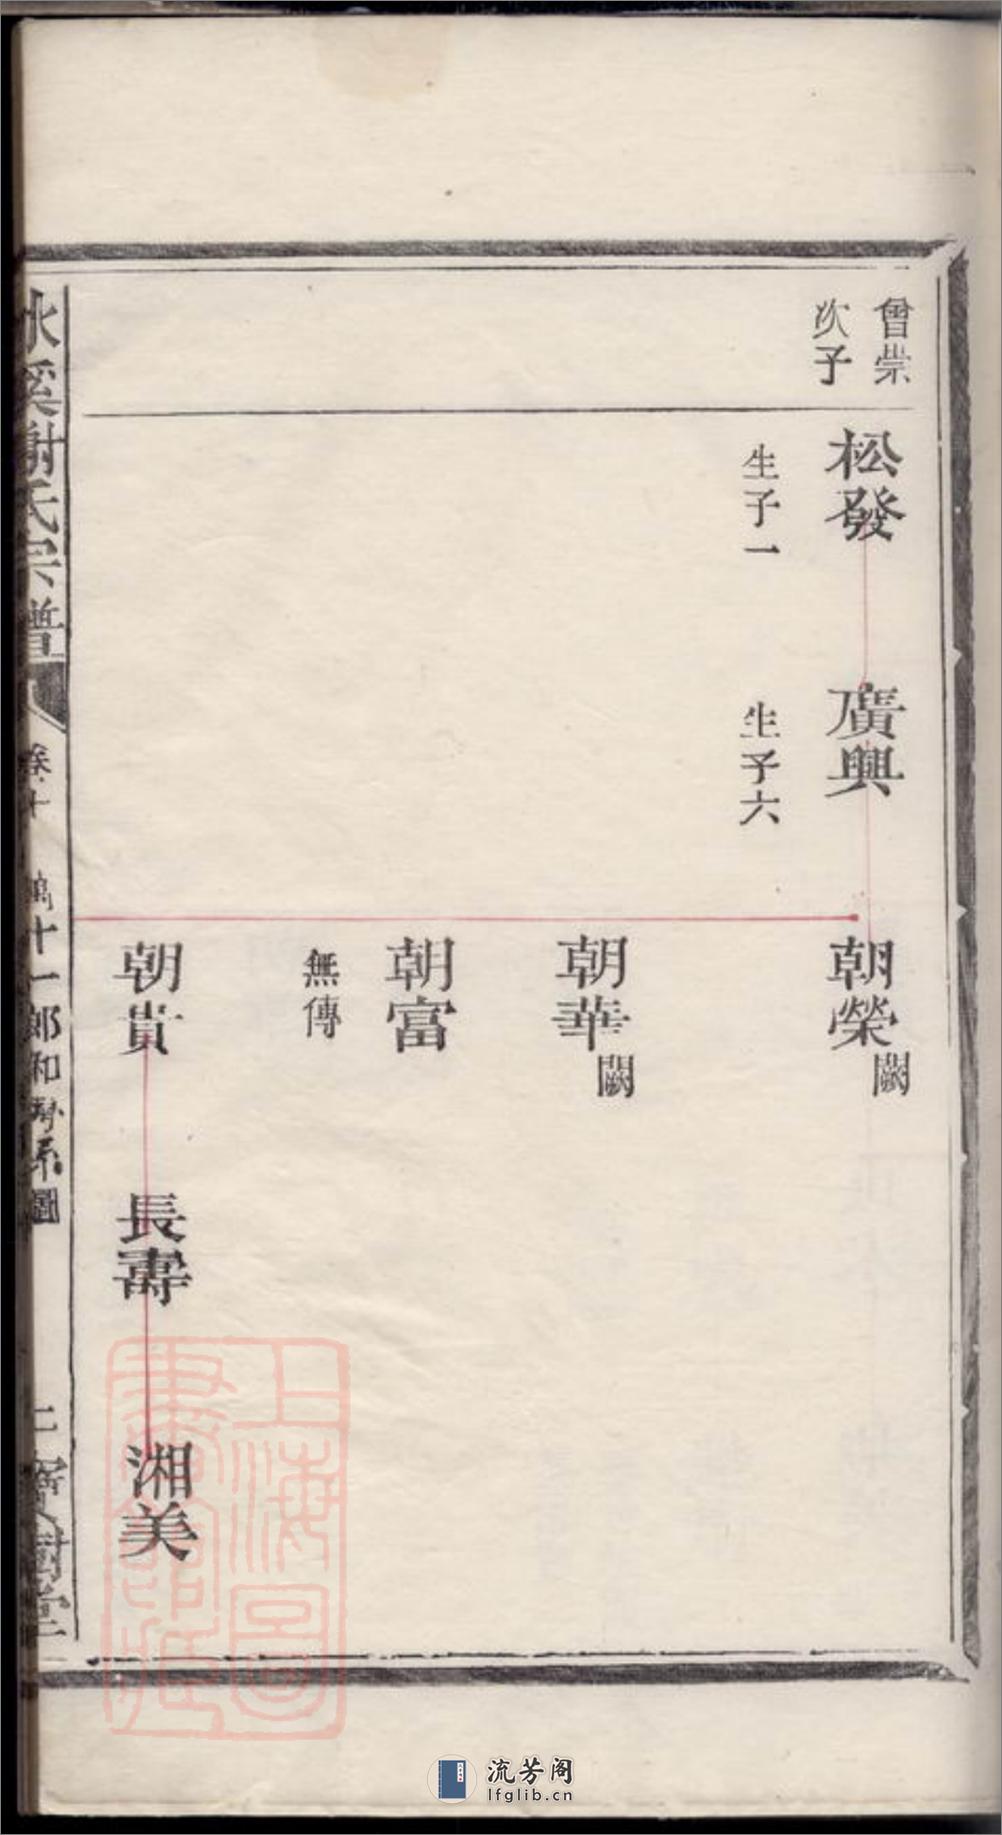 曾崇
次子
松發
生子一
廣興
生子六
朝榮
闕
朝華
闕
朝富
無傳
朝貴
長壽
湘美
冰溪謝氏宗譜
卷十
十一郎和
系圖
二
上海圖
書館藏
流芳阁
lfglib.cn